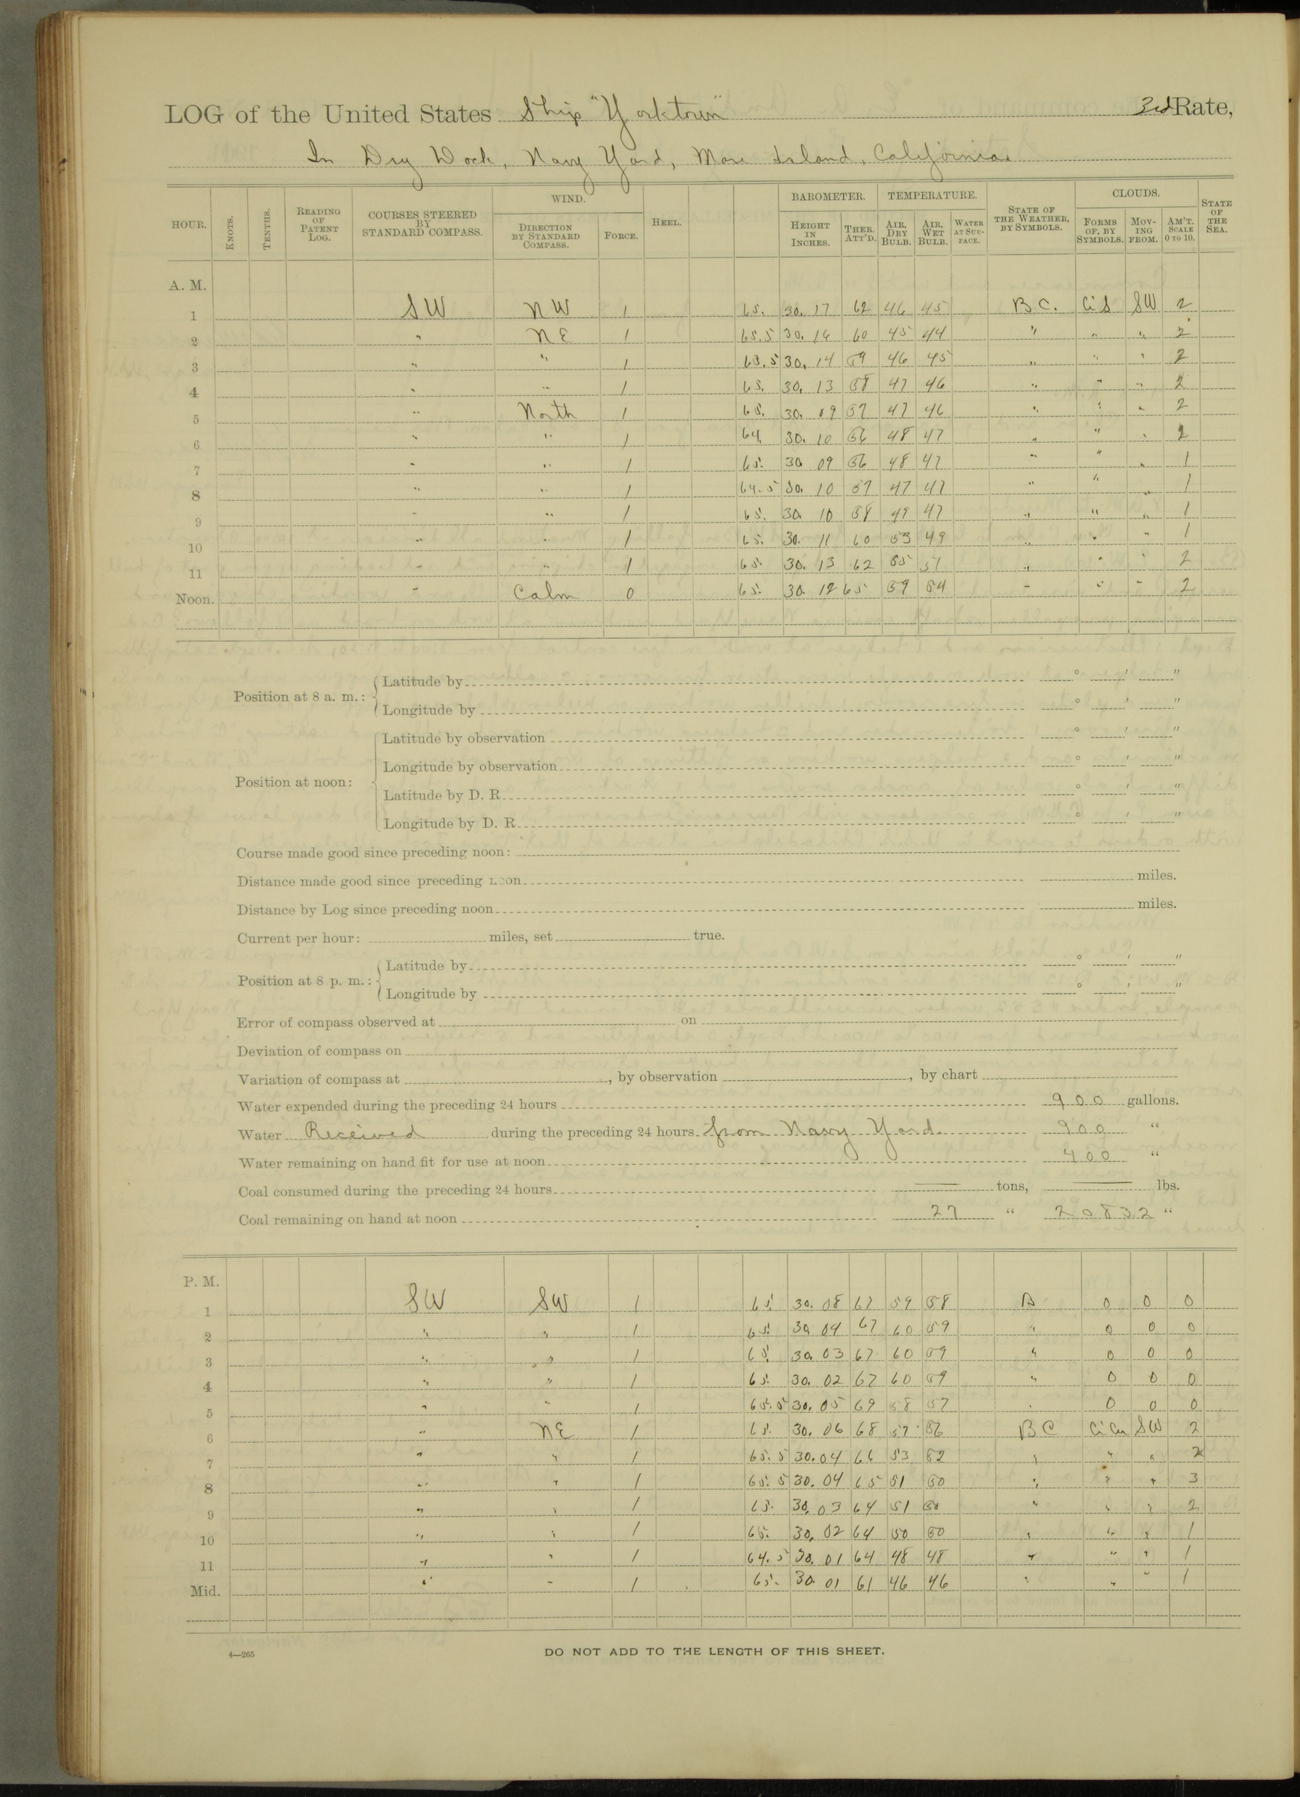 LOG of the United States Ship "Yorktown" 3rd Rate,
In Dry Dock, Navy Yard, Mare Island, California
HOUR. KNOTS. TENTHS. READING OF PATENT LOG. COURSES STEERED BY STANDARD COMPASS. WIND. DIRECTION BY STANDARD COMPASS. FORCE. HEEL. BAROMETER. HEIGHT IN INCHES. THER. ATT'D. TEMPERATURE. AIR, DRY BULB. AIR, WET BULB. WATER AT SURFACE. STATE OF THE WEATHER, BY SYMBOLS. CLOUDS. FORMS OF, BY SYMBOLS. MOVING FROM. AM'T. SCALE 0 TO 10. STATE OF THE SEA.
A. M.
1 SW NW 1 65. 30. 17 62 46 45 B C. Ci S SW 2
2 " NE 1 65.5 30. 14 60 45 44 " " " 2
3 " " 1 63.5 30. 14 59 46 45 " " " 2
4 " " 1 65. 30. 13 58 47 46 " " " 2
5 " North 1 65. 30. 09 57 47 46 " " " 2
6 " " 1 64. 30. 10 56 48 47 " " " 2
7 " " 1 65. 30 09 56 48 47 " " " 1
8 " " 1 64.5 30. 10 57 47 47 " " " 1
9 " " 1 65. 30. 10 58 49 47 " " " 1
10 " " 1 65. 30. 11 60 53 49 " " " 1
11 " " 1 65. 30. 13 62 55 51 " " " 2
Noon. " Calm 0 65. 30. 12 65 59 54 " " " 2
Position at 8 a. m.: Latitude by ° ′ ″
Longitude by ° ′ ″
Position at noon: Latitude by observation ° ′ ″
Longitude by observation ° ′ ″
Latitude by D. R. ° ′ ″
Longitude by D. R. ° ′ ″
Course made good since preceding noon:
Distance made good since preceding noon miles.
Distance by Log since preceding noon miles.
Current per hour: miles, set true.
Position at 8 p. m.: Latitude by ° ′ ″
Longitude by ° ′ ″
Error of compass observed at on
Deviation of compass on
Variation of compass at , by observation , by chart
Water expended during the preceding 24 hours 900 gallons.
Water Received during the preceding 24 hours from Navy Yard. 900 "
Water remaining on hand fit for use at noon 400 "
Coal consumed during the preceding 24 hours — tons, — lbs.
Coal remaining on hand at noon 27 " 20832 "
P. M.
1 SW SW 1 65. 30. 08 67 59 58 B 0 0 0
2 " " 1 65. 30. 04 67 60 59 " 0 0 0
3 " " 1 65. 30. 03 67 60 59 " 0 0 0
4 " " 1 65. 30. 02 67 60 59 " 0 0 0
5 " " 1 65.5 30. 05 69 58 57 " 0 0 0
6 " NE 1 65. 30. 06 68 57 56 B C Ci Cu SW 2
7 " " 1 65.5 30. 04 66 53 52 " " " 2
8 " " 1 65.5 30. 04 65 51 50 " " " 3
9 " " 1 65. 30. 03 64 51 50 " " " 2
10 " " 1 65. 30. 02 64 50 50 " " " 1
11 " " 1 64.5 30. 01 64 48 48 " " " 1
Mid. " " 1 65. 30. 01 61 46 46 " " " 1
4—265
DO NOT ADD TO THE LENGTH OF THIS SHEET.